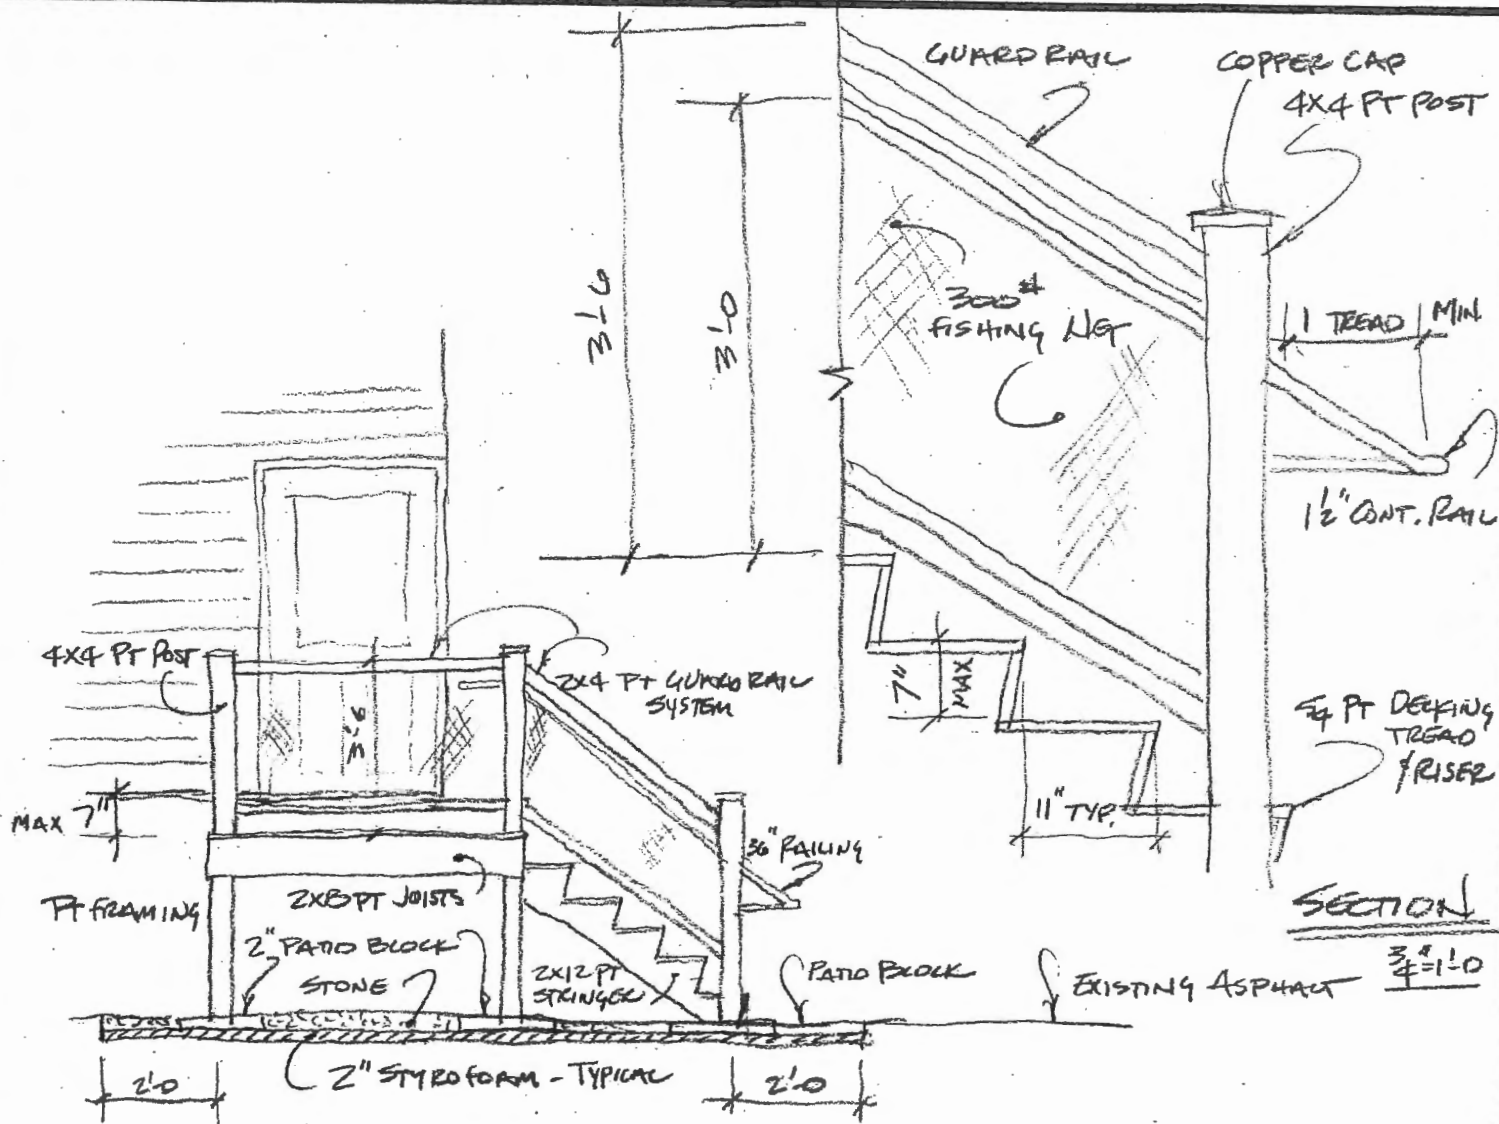 GUARD RAIL
COPPER CAP
4X4 PT POST
3'-6
3'-0
300#
FISHING NET
1 TREAD MIN.
1½" CONT. RAIL
7"
MAX
11" TYP.
5/4 PT DECKING
TREAD
/RISER
SECTION
¾"=1'-0
4X4 PT POST
2X4 PT GUARD RAIL
SYSTEM
3'-6
MAX 7"
36" RAILING
PT FRAMING
2X8 PT JOISTS
2" PATIO BLOCK
STONE
2X12 PT
STRINGER
PATIO BLOCK
EXISTING ASPHALT
2'-0
2" STYROFOAM - TYPICAL
2'-0